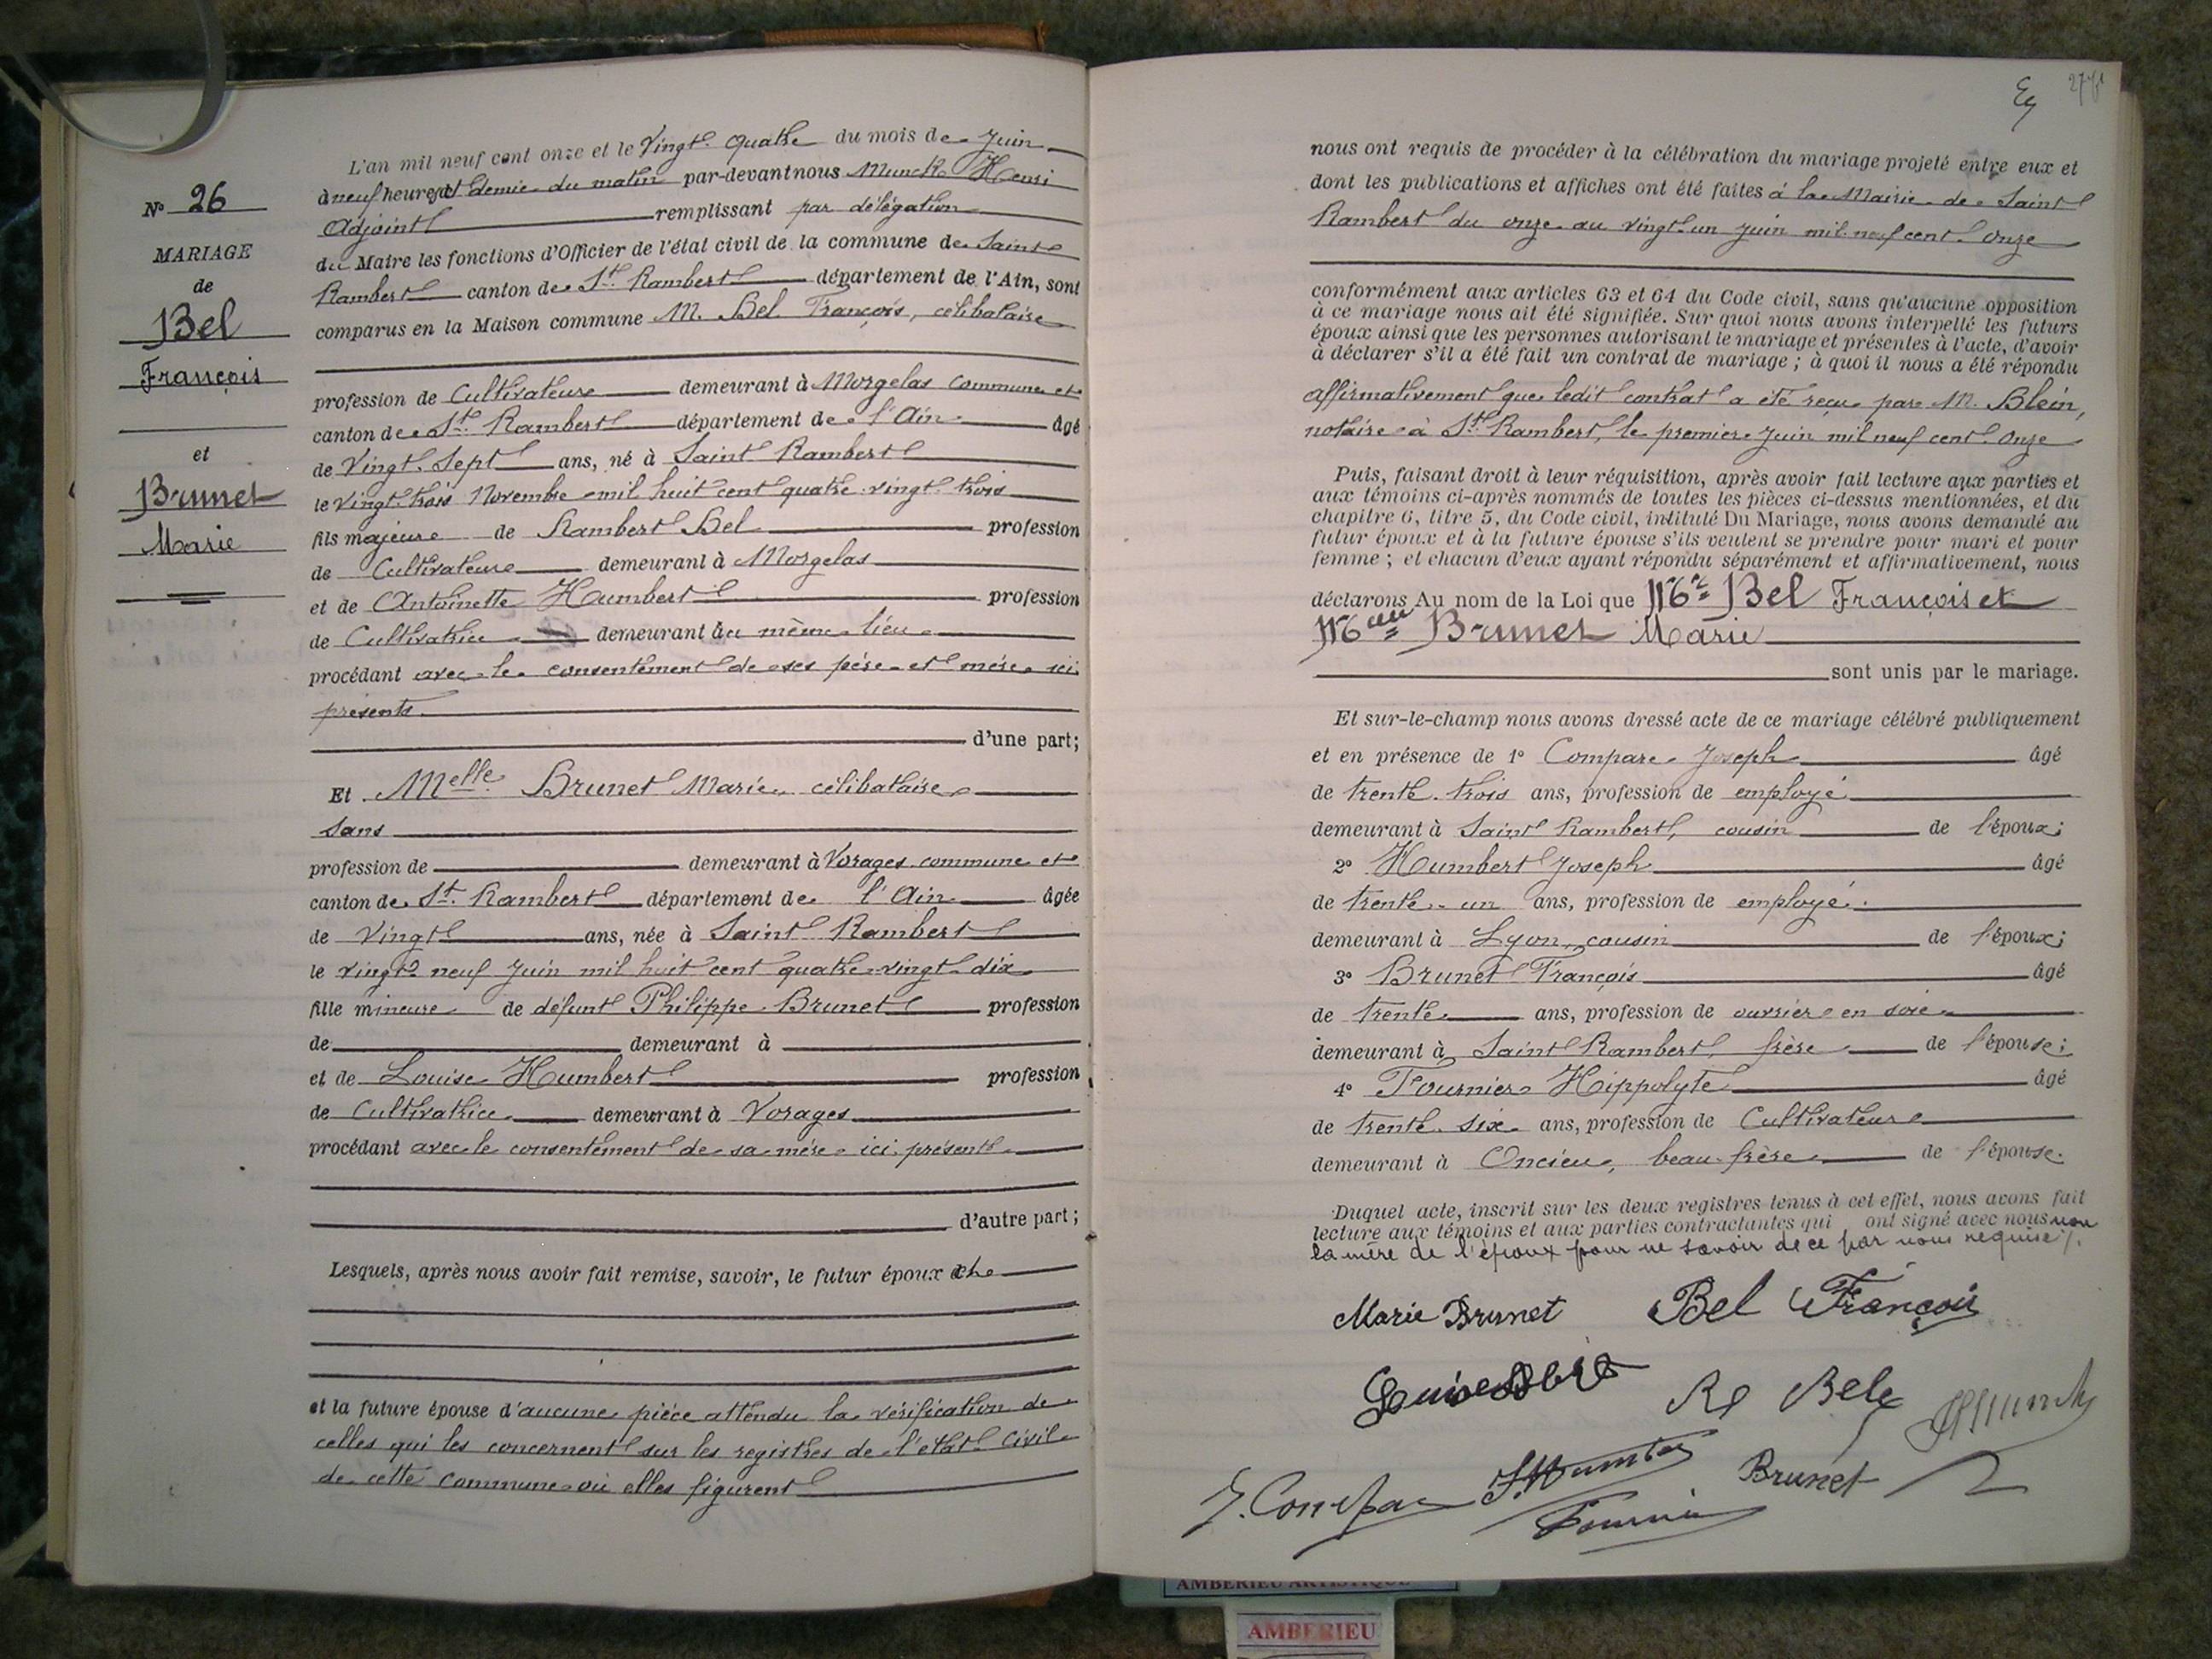 N° 26
MARIAGE
de
Bel
François
et
Brunet
Marie
L'an mil neuf cent onze et le Vingt-quatre du mois de Juin
à neuf heures et demie du matin par-devant nous Munck Henri
Adjoint remplissant par délégation
du Maire les fonctions d'Officier de l'état civil de la commune de Saint
Rambert canton de St. Rambert département de l'Ain, sont
comparus en la Maison commune M. Bel François, célibataire
profession de Cultivateur demeurant à Morgelas commune et
canton de St. Rambert département de l'Ain âgé
de Vingt-Sept ans, né à Saint Rambert
le vingt-trois Novembre mil huit cent quatre-vingt-trois
fils majeur de Rambert Bel profession
de Cultivateur demeurant à Morgelas
et de Antoinette Humbert profession
de Cultivatrice demeurant au même lieu
procédant avec le consentement de ses père et mère ici
présents
d'une part;
Et Melle Brunet Marie, célibataire
sans
profession de demeurant à Vorages commune et
canton de St. Rambert département de l'Ain âgée
de Vingt ans, née à Saint Rambert
le vingt-neuf Juin mil huit cent quatre-vingt-dix
fille mineure de défunt Philippe Brunet profession
de demeurant à
et de Louise Humbert profession
de Cultivatrice demeurant à Vorages
procédant avec le consentement de sa mère ici présente
d'autre part;
Lesquels, après nous avoir fait remise, savoir, le futur époux
et la future épouse d'aucune pièce attendu la vérification de
celles qui les concernent sur les registres de l'état civil
de cette commune où elles figurent
nous ont requis de procéder à la célébration du mariage projeté entre eux et
dont les publications et affiches ont été faites à la Mairie de Saint
Rambert du onze au vingt-un juin mil neuf cent onze
conformément aux articles 63 et 64 du Code civil, sans qu'aucune opposition
à ce mariage nous ait été signifiée. Sur quoi nous avons interpellé les futurs
époux ainsi que les personnes autorisant le mariage et présentes à l'acte, d'avoir
à déclarer s'il a été fait un contrat de mariage ; à quoi il nous a été répondu
affirmativement que ledit contrat a été reçu par M. Blein,
notaire à St. Rambert, le premier Juin mil neuf cent onze
Puis, faisant droit à leur réquisition, après avoir fait lecture aux parties et
aux témoins ci-après nommés de toutes les pièces ci-dessus mentionnées, et du
chapitre 6, titre 5, du Code civil, intitulé Du Mariage, nous avons demandé au
futur époux et à la future épouse s'ils veulent se prendre pour mari et pour
femme ; et chacun d'eux ayant répondu séparément et affirmativement, nous
déclarons Au nom de la Loi que Mr Bel François et
Melle Brunet Marie
sont unis par le mariage.
Et sur-le-champ nous avons dressé acte de ce mariage célébré publiquement
et en présence de 1° Compare Joseph âgé
de trente-trois ans, profession de employé
demeurant à Saint Rambert, cousin de l'époux;
2° Humbert Joseph âgé
de trente-un ans, profession de employé
demeurant à Lyon, cousin de l'époux;
3° Brunet François âgé
de trente ans, profession de ouvrier en soie
demeurant à Saint Rambert, frère de l'épouse;
4° Fournier Hippolyte âgé
de trente-six ans, profession de Cultivateur
demeurant à Oncieu, beau-frère de l'épouse.
Duquel acte, inscrit sur les deux registres tenus à cet effet, nous avons fait
lecture aux témoins et aux parties contractantes qui ont signé avec nous non
la mère de l'époux pour ne savoir de ce par nous requise
Marie Brunet Bel François
Re Bel
J. Compare J. Humbert Brunet
Fournier
AMBERIEU ARTISTIQUE
AMBERIEU